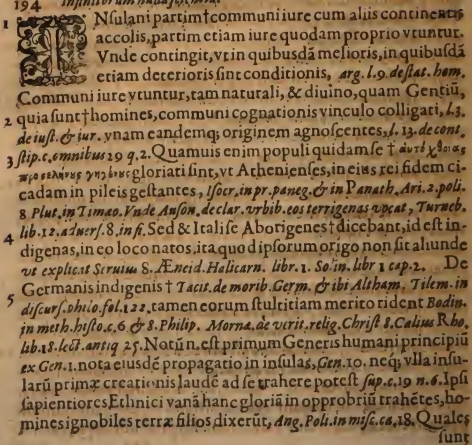 194
1 INsulani partim†communi iure cum aliis continentis
accolis, partim etiam iure quodam proprio vtuntur.
Vnde contingit, vt in quibusdā melioris, in quibusdā
etiam deterioris sint conditionis, arg. l. 9. de stat. hom.
Communi iure vtuntur, tam naturali, & diuino, quam Gentiū,
2 quia sunt†homines, communi cognationis vinculo colligati, l. 3.
de iust. & iur. vnam eandemq; originem agnoscentes, l. 13. de cont.
3 stip. c. omnibus 29 q. 2. Quamuis enim populi quidam se †
gloriati sint, vt Athenienses, in eius rei fidem ci-
cadam in pileis gestantes, Isocr. in pr. paneg. & in Panath. Ari. 2. poli.
8 Plut. in Timæo. Vnde Auson. de clar. vrbib. eos terrigenas vocat, Turneb.
4 lib. 12. aduers. 8. in fi. Sed & Italiſe Aborigenes†dicebant, id est in-
digenas, in eo loco natos, ita quod ipsorum origo non sit aliunde
vt explicat Seruius 8. Æneid. Halicarn. libr. 1. So. in libr 1 cap. 2. De
Germanis indigenis † Tacit. de morib. Germ. & ibi Altham. Tilem. in
5 discurs. philo. fol. 122. tamen eorum stultitiam merito rident Bodin.
in meth. histo. c. 6 & 8. Philip. Morna. de verit. relig. Christ 8. Cælius Rho.
lib. 18. lect. antiq 25. Notū n. est primum Generis humani principiū
ex Gen. 1. nota eiusdē propagatio in insulas, Gen. 10. neq; vlla insu-
larū primæ creationis laudē ad se trahere potest sup. c. 19 n. 6. Ipsi
sapientiores Ethnici vanā hanc gloriā in opprobriū trahētes, ho-
mines ignobiles terræ filios dixerūt, Ang. Poli. in misc. ca. 18. Quales
sunt